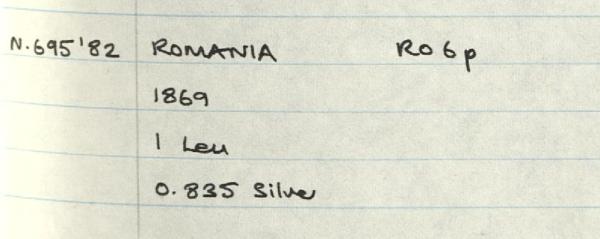 N.695'82 ROMANIA RO6p
1869
1 Leu
0.835 Silver